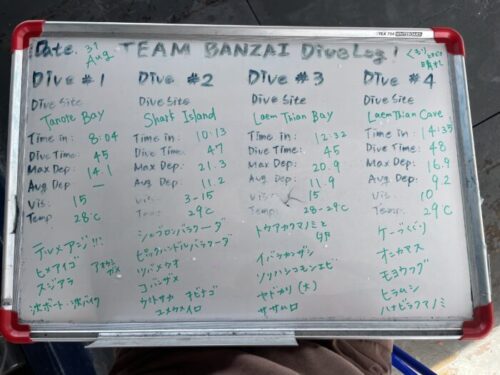 Date. 31 Aug TEAM BANZAI Dive Log!
Dive #1
Dive Site
Tanote Bay
Time in: 8:04
Dive Time: 45
Max Dep: 14.1
Avg Dep: —
Vis: 15
Temp 28℃
ギンガメアジ!!!
ヒメアイゴ アオウミガメ
スジアラ
沈ボート・沈バイク
Dive #2
Dive Site
Shark Island
Time in: 10:13
Dive Time: 47
Max Dep: 21.3
Avg Dep: 11.2
Vis: 3-15
Temp: 29℃
シェブロンバラクーダ
ピックハンドルバラクーダ
ツバメウオ
コバンザメ
キビナゴ
ユメウメイロ
Dive #3
Dive Site
Laem Thian Bay
Time in: 12:32
Dive Time: 45
Max Dep: 20.9
Avg Dep: 11.9
Vis: 15
Temp: 28-29℃
トウアカクマノミと
卵
イバラカンザシ
ソリハシコモンエビ
ヤドカリ(大)
ササムロ
Dive #4
Dive Site
Laem Thian Cave
Time in: 14:35
Dive Time: 48
Max Dep: 16.9
Avg Dep: 9.2
Vis: 10
Temp: 29℃
ケーブくぐり
オニカマス
モヨウフグ
ヒラムシ
ハナビラクマノミ